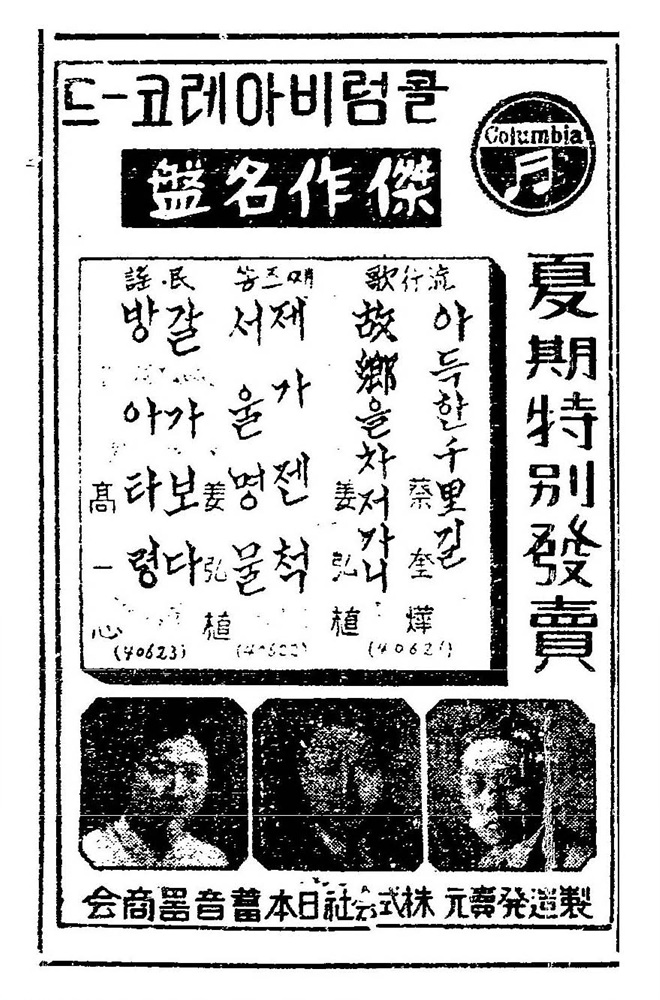 콜럼비아레코-드
Columbia
傑作名盤
夏期特別發賣
流行歌
아득한千里길
蔡奎燁
故鄕을차저가니
姜弘植
(40621)
제가젠척
서울명물
姜弘植
(40622)
民·謠
갈가보다
방아타령
高一心
(40623)
製造発賣元 株式会社日本蓄音器商会